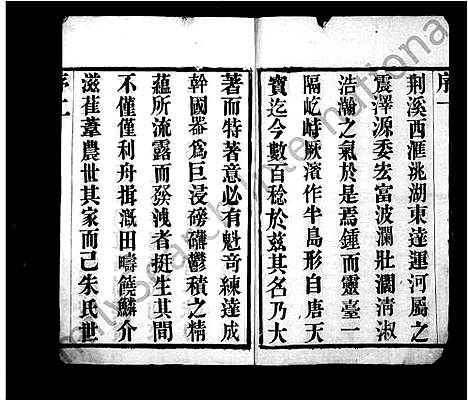 序一
荆溪西滙洮湖東達運河屬之
震澤源委宏富波瀾壯濶淸淑
浩瀚之氣於是焉鍾而靈臺一
隔屹峙厥濱作半島形自唐天
寶迄今數百稔於茲其名乃大
著而特著意必有魁奇練達成
幹國器爲巨浸磅礴鬱積之精
蘊所流露而發洩者挺生其間
不僅僅利舟揖漑田疇饒鱗介
滋萑葦農世其家而己朱氏世
序二
familysearch international